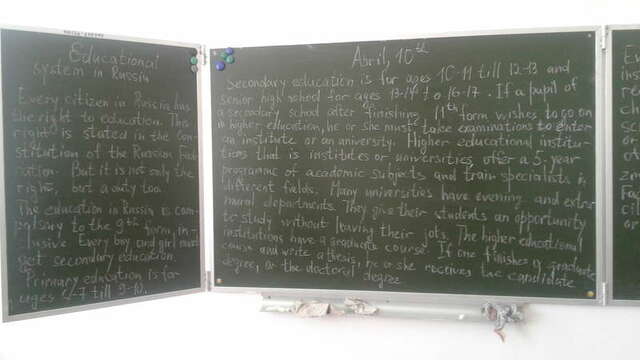 Educational
system in Russia
Every citizen in Russia has
the right to education. This
right is stated in the con-
stitution of the Russian Fede-
ration. But it is not only the
right, but a duty too.
The education in Russia is com-
pulsory to the 9th form, in-
lusive. Every boy and girl must
get secondary education.
Primary education is for
ages 6-7 till 9-10.
April, 10th
Secondary education is for ages 10-11 till 12-13 and
senior high school for ages 13-14 to 16-17. If a pupil of
a secondary school after finishing 11th form wishes to go on
in higher education, he or she must take examinations to enter
an institute or an university. Higher educational institu-
tions that is institutes or universities offer a 5-year
programme of academic subjects and train specialists in
different fields. Many universities have evening and extra
mural departments. They give their students an opportunity
to study without leaving their jobs. The higher educational
institutions have a graduate course. If one finishes a graduate
course and write a thesis, he or she receives the candidate
degree, or the doctoral degree